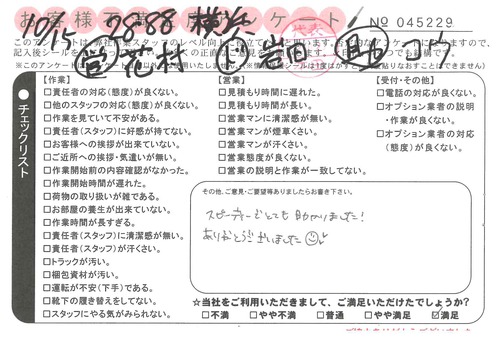 お客様満足度アンケート
№ 045229
10/15 2858 横
チェックリスト
【作業】
□責任者の対応(態度)が良くない。
□他のスタッフの対応(態度)が良くない。
□作業を見ていて不安がある。
□責任者(スタッフ)に好感が持てない。
□お客様への挨拶が出来ていない。
□ご近所への挨拶・気遣いが無い。
□作業開始前の内容確認がなかった。
□作業開始時間が遅れた。
□荷物の取り扱いが雑である。
□お部屋の養生が出来ていない。
□作業時間が長すぎる。
□責任者(スタッフ)に清潔感が無い。
□責任者(スタッフ)が汗くさい。
□トラックが汚い。
□梱包資材が汚い。
□運転が不安(下手)である。
□靴下の履き替えをしてない。
□スタッフにやる気がみられない。
【営業】
□見積もり時間に遅れた。
□見積もり時間が長い。
□営業マンに清潔感が無い。
□営業マンが煙草くさい。
□営業マンが汗くさい。
□営業態度が良くない。
□営業の説明と作業が一致してない。
【受付・その他】
□電話の対応が良くない。
□オプション業者の説明・作業が良くない。
□オプション業者の対応(態度)が良くない。
その他、ご意見・ご要望等ありましたらお書き下さい。
スピーディーでとても助かりました!
ありがとうございました
☆当社をご利用いただきまして、ご満足いただけたでしょうか?
□不満 □やや不満 □普通 □やや満足 ☑満足